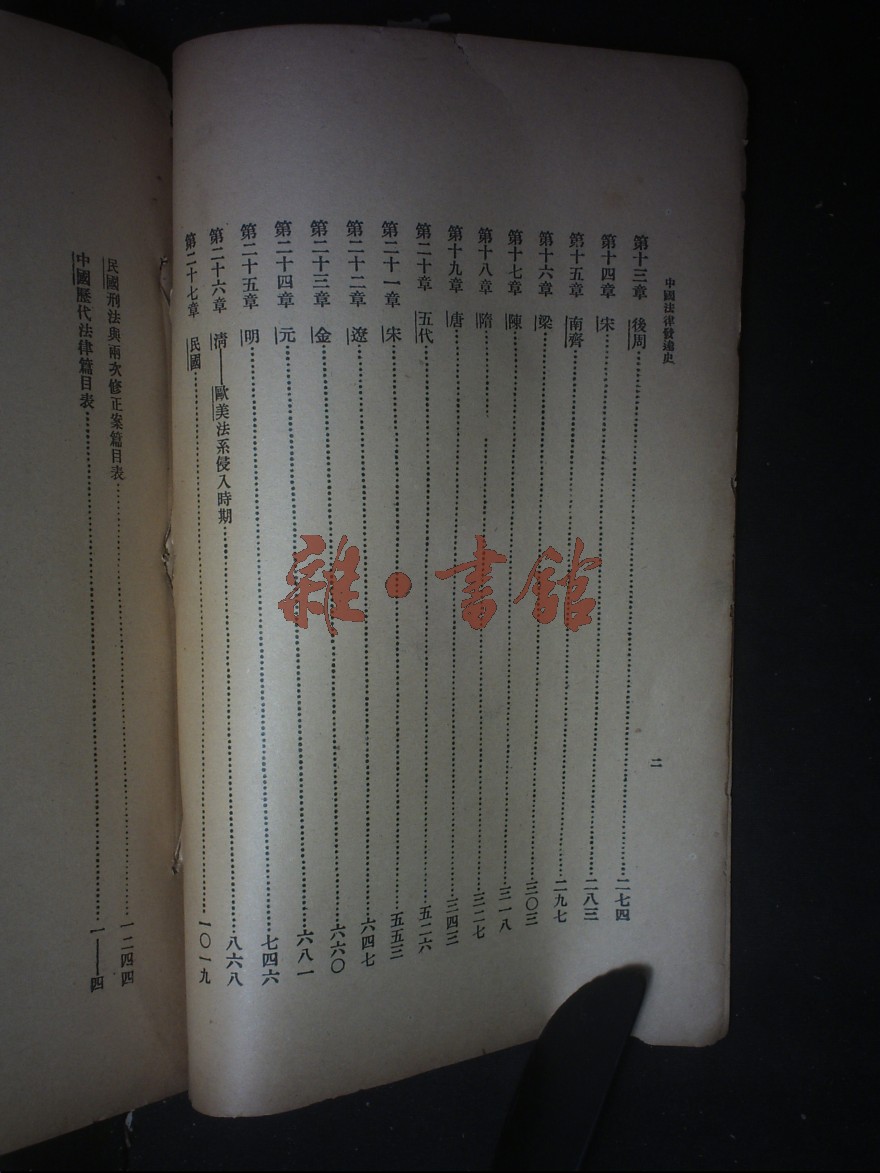 中國法律發達史
二
第十三章 後周……二七四
第十四章 宋……二八三
第十五章 南齊……二九七
第十六章 梁……三〇三
第十七章 陳……三一八
第十八章 隋……三二七
第十九章 唐……三四三
第二十章 五代……五二六
第二十一章 宋……五五三
第二十二章 遼……六四七
第二十三章 金……六六〇
第二十四章 元……六八一
第二十五章 明……七四六
第二十六章 清——歐美法系侵入時期……八六八
第二十七章 民國……一〇一九
民國刑法與兩次修正案篇目表……一二四四
中國歷代法律篇目表……一——四
雜·書館